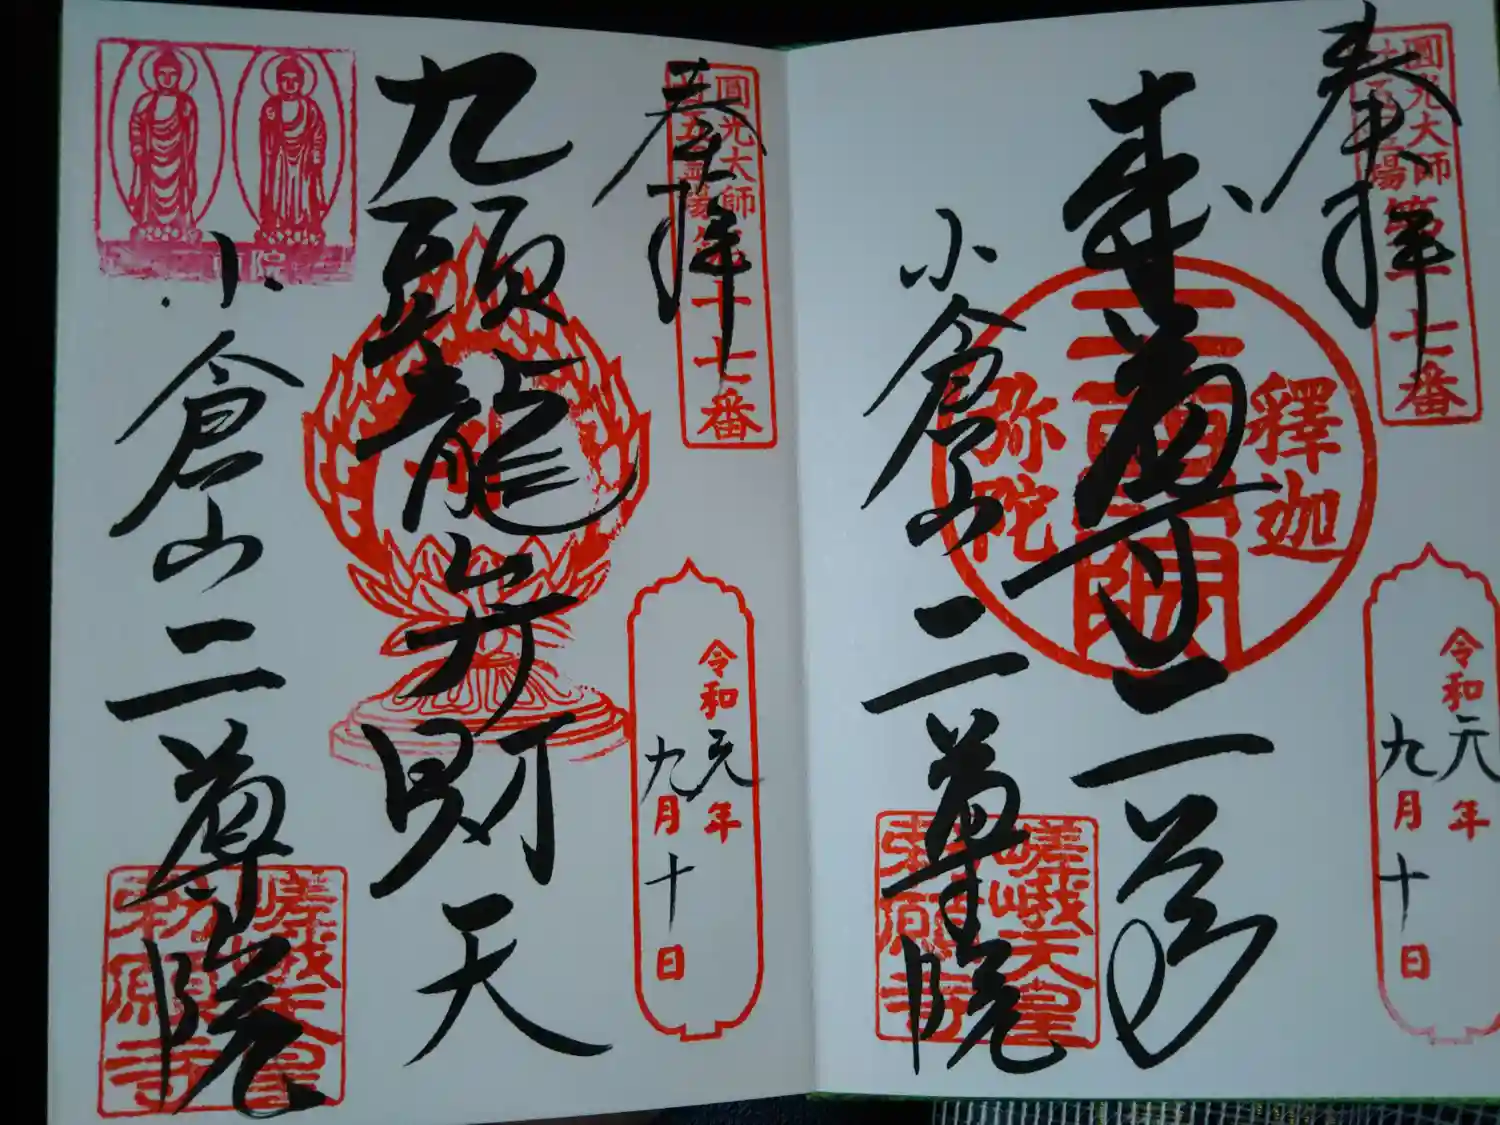 奉拝
圓光大師
二十五霊場第十七番
本尊二尊
釋迦
弥陀
二尊院
小倉山二尊院
嵯峨天皇
勅願寺
令和元年
九月十日
奉拝
圓光大師
二十五霊場第十七番
九頭龍弁財天
令和元年
九月十日
小倉山二尊院
嵯峨天皇
勅願寺